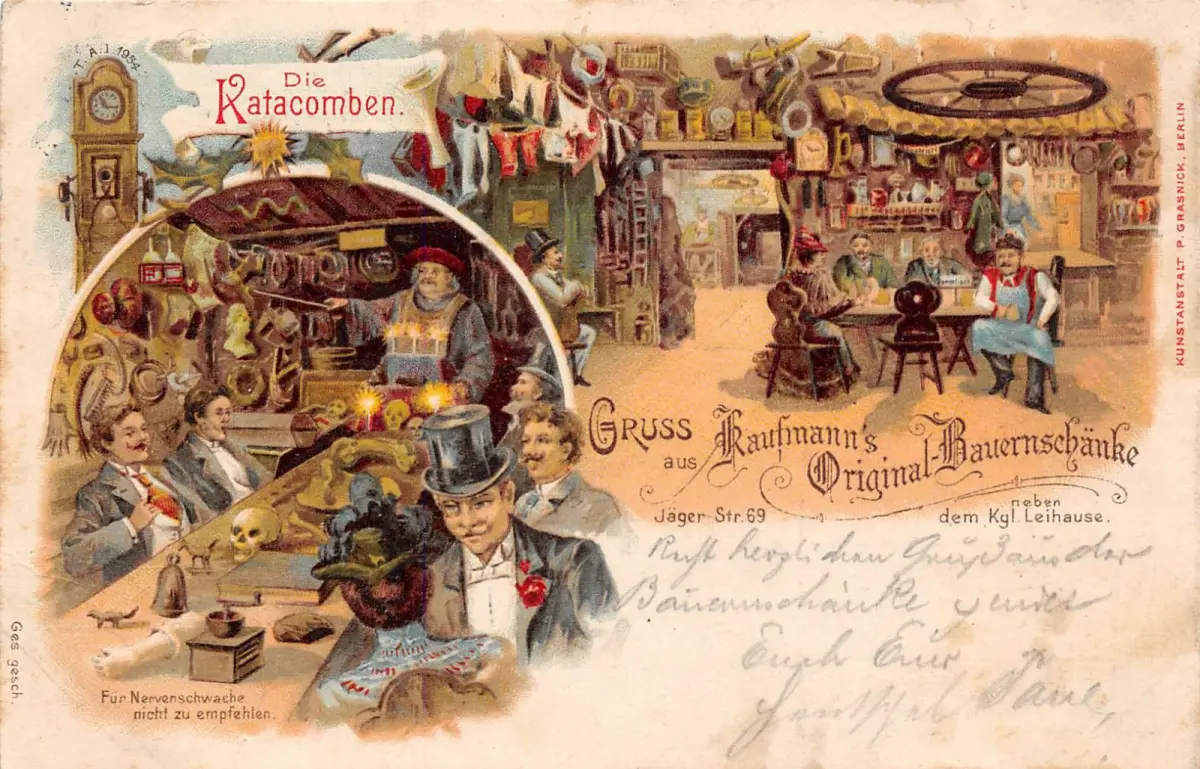 T. A. J. 1954.
Die
Katacomben.
Gruss
aus
Kaufmann's
Original-Bauernschänke
Jäger-Str. 69
neben
dem Kgl. Leihause.
herzlichen Gruß aus der
Bauernschänke sendet
Euch Euer
Für Nervenschwache
nicht zu empfehlen.
Ges. gesch.
KUNSTANSTALT P. GRASNICK, BERLIN